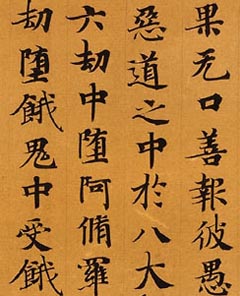 果无口善報彼愚
惡道之中於八大
六劫中堕阿脩羅
劫堕餓鬼中受餓